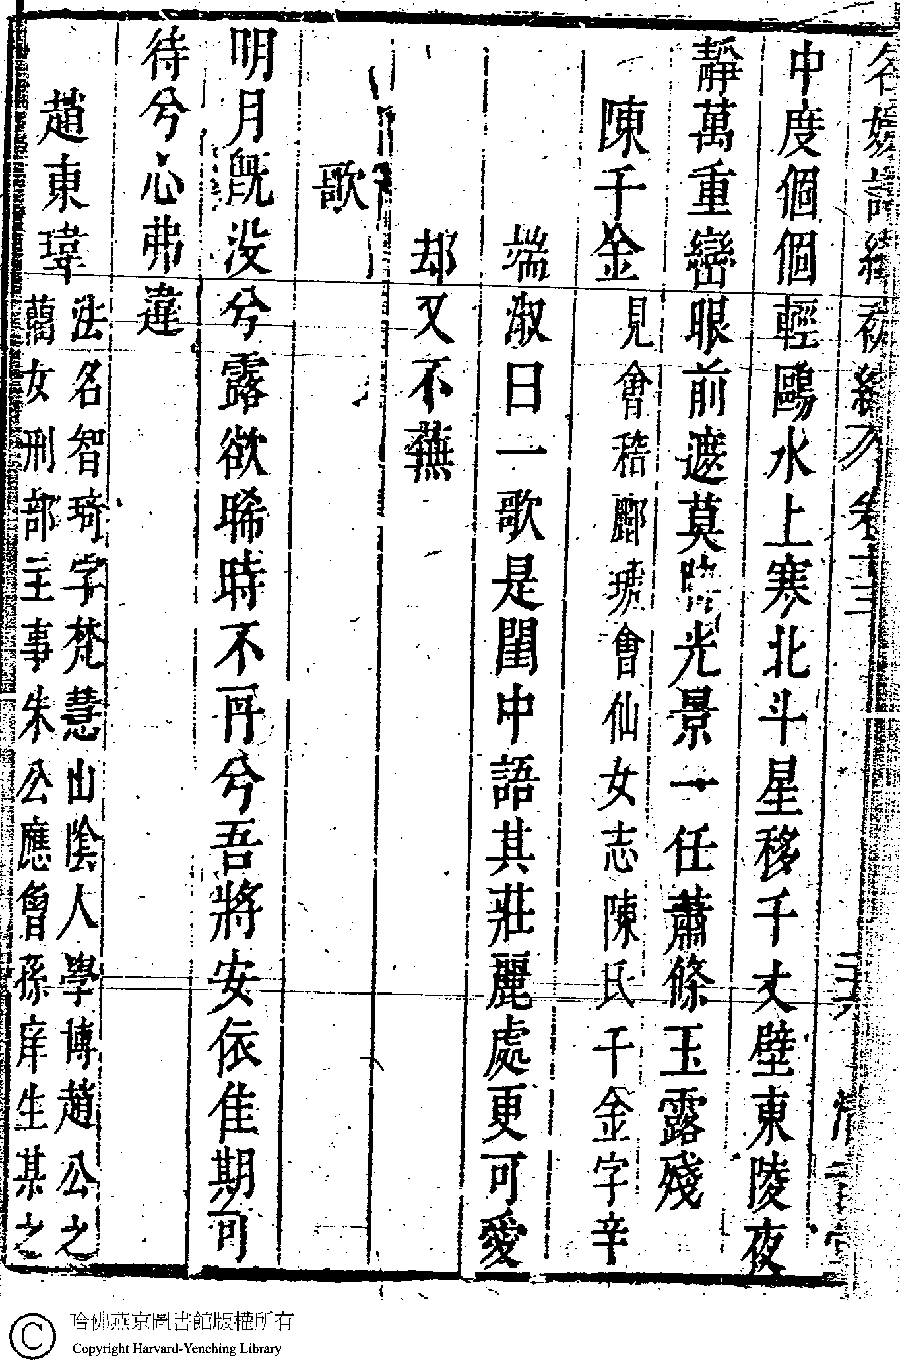 名媛詩緯初編 卷十三
中度個個輕鷗水上寒北斗星移千丈壁東陵夜
靜萬重巒眼前遮莫光景一任蕭條玉露殘
陳千金見會稽酈琥會仙女志陳氏千金字辛
端淑曰一歌是閨中語其莊麗處更可愛
却又不蕪
歌
明月旣没兮露欲晞時不再兮吾將安依佳期可
待兮心弗違
趙東瑋
法名智琦字梵慧山陰人學博趙公之
藺女刑部主事朱公應曾孫庠生某之
哈佛燕京圖書館版權所有
Copyright Harvard-Yenching Library